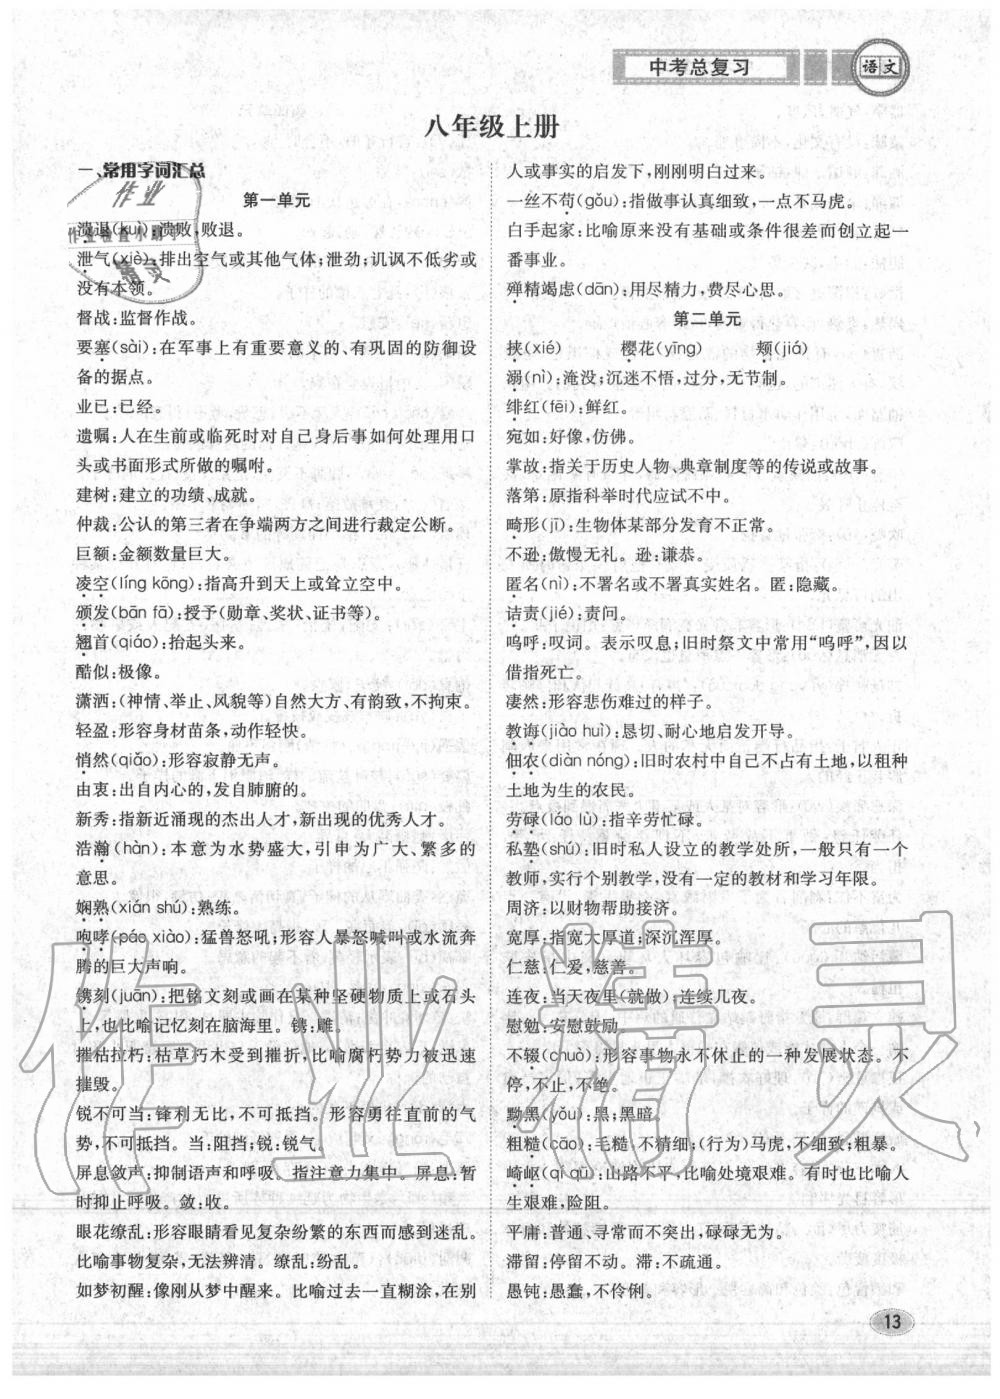 中考总复习
语文
八年级上册
一、常用字词汇总
第一单元
溃退(kuì):溃败,败退。
泄气(xiè):排出空气或其他气体;泄劲;讥讽不低劣或
没有本领。
督战:监督作战。
要塞(sài):在军事上有重要意义的、有巩固的防御设
备的据点。
业已:已经。
遗嘱:人在生前或临死时对自己身后事如何处理用口
头或书面形式所做的嘱咐。
建树:建立的功绩、成就。
仲裁:公认的第三者在争端两方之间进行裁定公断。
巨额:金额数量巨大。
凌空(líng kōng):指高升到天上或耸立空中。
颁发(bān fā):授予(勋章、奖状、证书等)。
翘首(qiáo):抬起头来。
酷似:极像。
潇洒:(神情、举止、风貌等)自然大方、有韵致,不拘束。
轻盈:形容身材苗条,动作轻快。
悄然(qiǎo):形容寂静无声。
由衷:出自内心的,发自肺腑的。
新秀:指新近涌现的杰出人才,新出现的优秀人才。
浩瀚(hàn):本意为水势盛大,引申为广大、繁多的
意思。
娴熟(xián shú):熟练。
咆哮(páo xiào):猛兽怒吼;形容人暴怒喊叫或水流奔
腾的巨大声响。
镌刻(juān):把铭文刻或画在某种坚硬物质或石头
上,也比喻记忆刻在脑海里。镌:雕。
摧枯拉朽:枯草朽木受到摧折,比喻腐朽势力被迅速
摧毁。
锐不可当:锋利无比,不可抵挡。形容勇往直前的气
势,不可抵挡。当:阻挡;锐:锐气。
屏息敛声:抑制语声和呼吸。指注意力集中。屏息:暂
时抑止呼吸。敛:收。
眼花缭乱:形容眼睛看见复杂纷繁的东西而感到迷乱。
比喻事物复杂,无法辨清。缭乱:纷乱。
如梦初醒:像刚从梦中醒来。比喻过去一直糊涂,在别
人或事实的启发下,刚刚明白过来。
一丝不苟(gǒu):指做事认真细致,一点不马虎。
白手起家:比喻原来没有基础或条件很差而创立起一
番事业。
殚精竭虑(dān):用尽精力,费尽心思。
第二单元
挟(xié) 樱花(yīng) 颊(jiá)
溺(nì):淹没;沉迷不悟,过分,无节制。
绯红(fēi):鲜红。
宛如:好像,仿佛。
掌故:指关于历史人物、典章制度等的传说或故事。
落第:原指科举时代应试不中。
畸形(jī):生物体某部分发育不正常。
不逊:傲慢无礼。逊:谦恭。
匿名(nì):不署名或不署真实姓名。匿:隐藏。
诘责(jié):责问。
呜呼:叹词。表示叹息;旧时祭文中常用“呜呼”,因以
借指死亡。
凄然:形容悲伤难过的样子。
教诲(jiào huì):恳切、耐心地启发开导。
佃农(diàn nóng):旧时农村中自己不占有土地,以租种
土地为生的农民。
劳碌(láo lù):指辛劳忙碌。
私塾(shú):旧时私人设立的教学处所,一般只有一个
教师,实行个别教学,没有一定的教材和学习年限。
周济:以财物帮助接济。
宽厚:指宽大厚道;深沉浑厚。
仁慈:仁爱,慈善。
连夜:当天夜里(就做);连续几夜。
慰勉:安慰鼓励。
不辍(chuò):形容事物永不休止的一种发展状态。不
停,不止,不绝。
黝黑(yǒu):黑;黑暗。
粗糙(cāo):毛糙,不精细;(行为)马虎,不细致;粗暴。
崎岖(qí qū):山路不平,比喻处境艰难。有时也比喻人
生艰难,险阻。
平庸:普通、寻常而不突出,碌碌无为。
滞留:停留不动。滞:不流通。
愚钝:愚蠢,不伶俐。
13
作业精灵
作业
作业检查小助手
精灵